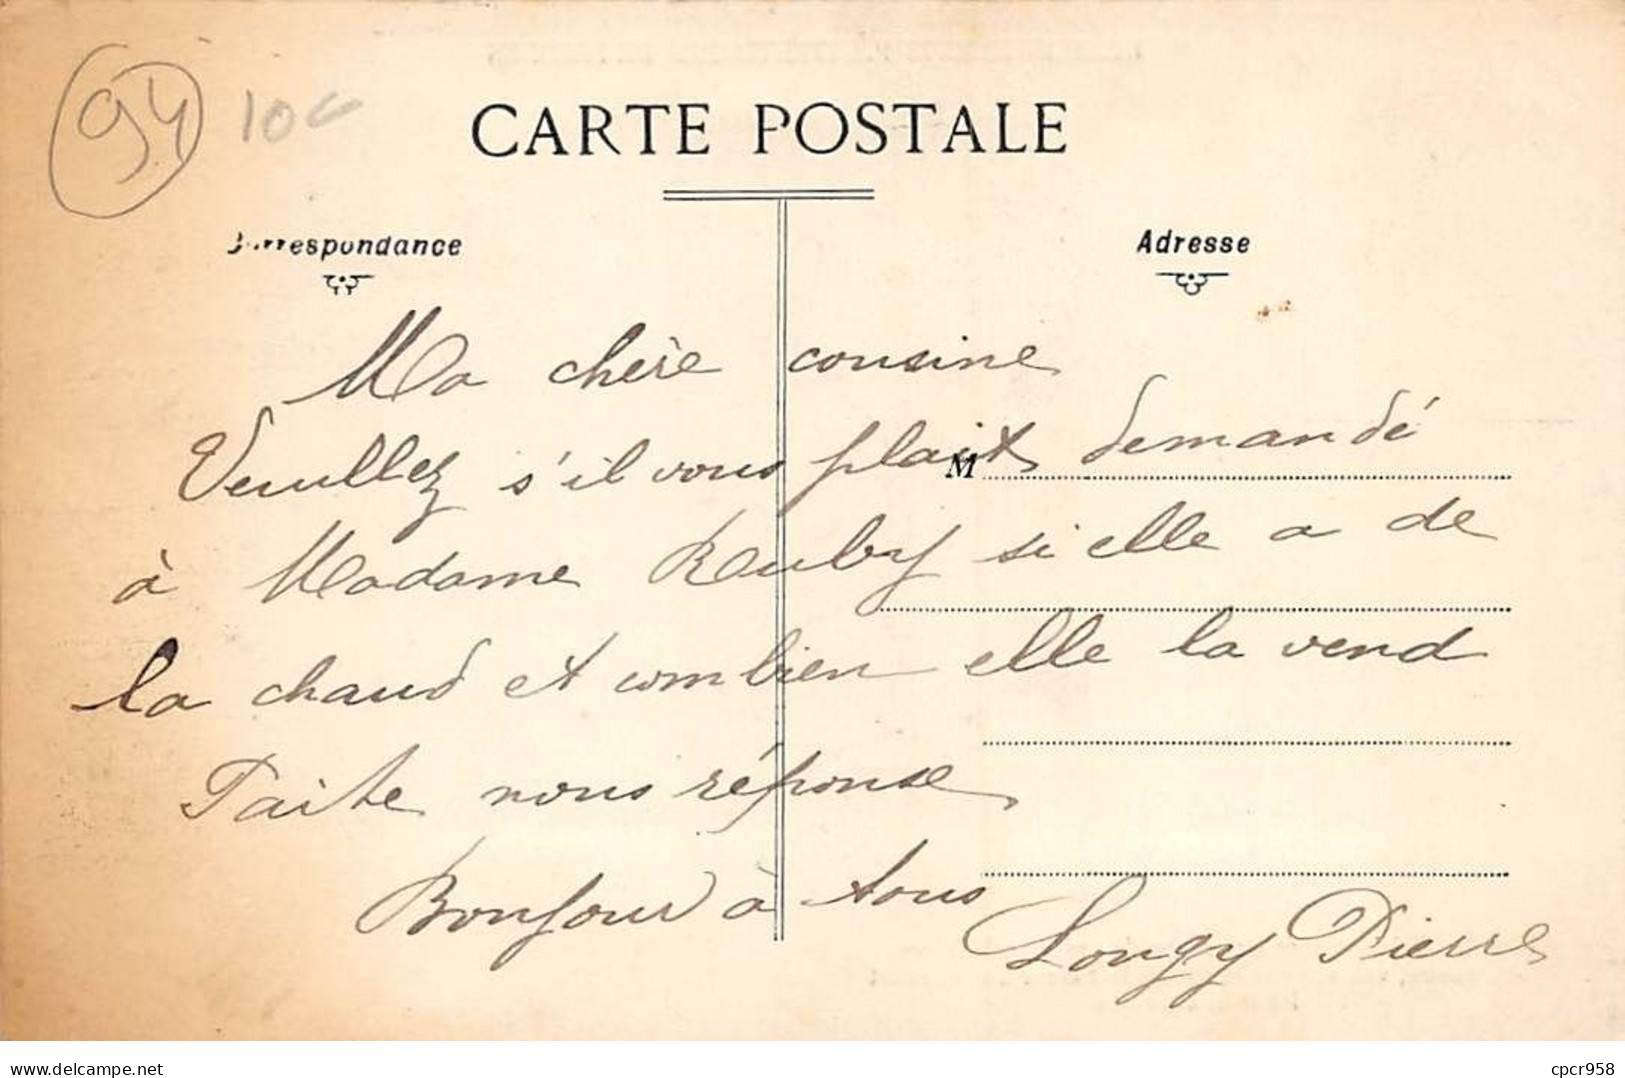 94 10c
CARTE POSTALE
Correspondance
Adresse
Ma chère cousine
Veuillez s'il vous plait demandé
M
à Madame Rouby si elle a de
la chaud et combien elle la vend
Faite nous réponse
Bonjour à tous
Longy Pierre
delcampe.net
cpcr958